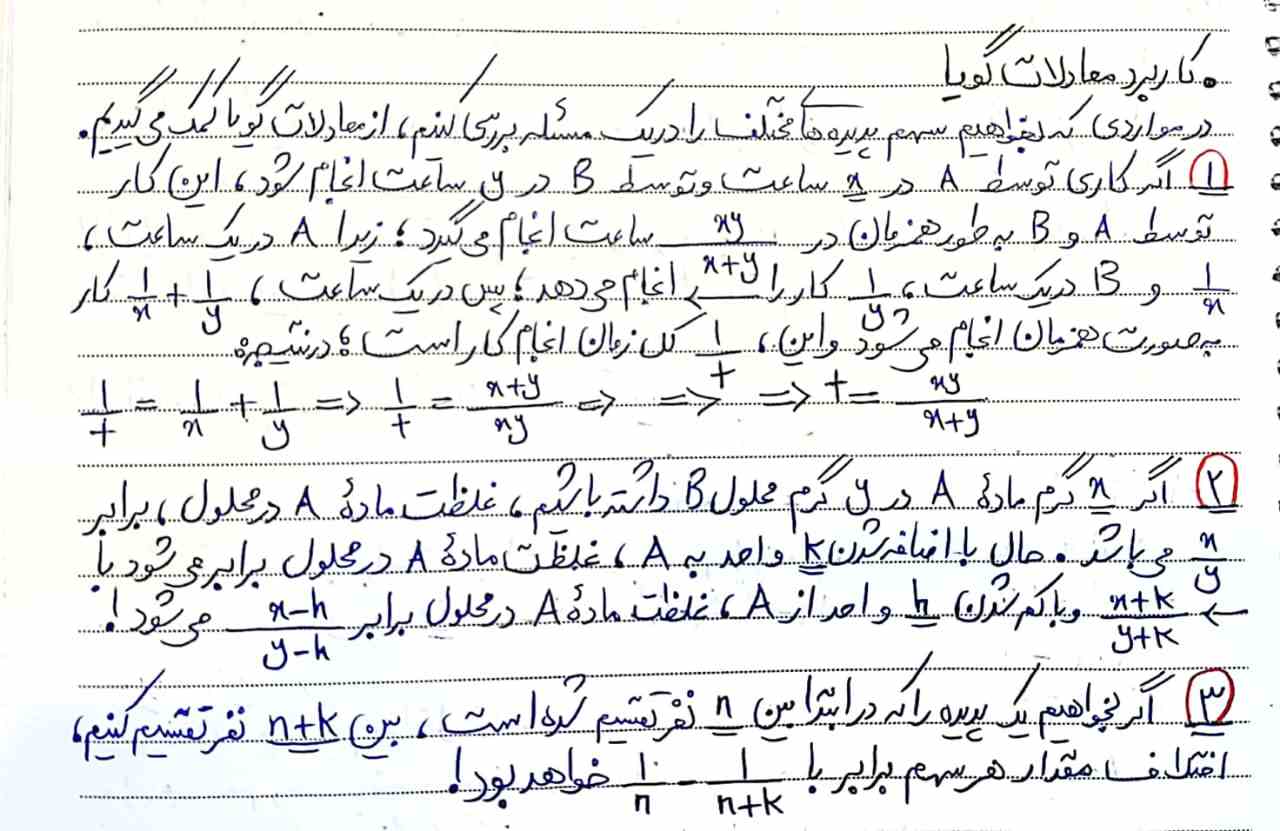 • کاربرد معادلات گویا
در مواردی که بخواهیم سهم پدیده‌های مختلف را در یک مسئله بررسی کنیم، از معادلات گویا کمک می‌گیریم.
۱ اگر کاری توسط A در x ساعت و توسط B در y ساعت انجام شود، این کار
توسط A و B به طور همزمان در xy/(x+y) ساعت انجام می‌گیرد؛ زیرا A در یک ساعت،
1/x و B در یک ساعت، 1/y کار را انجام می‌دهد؛ پس در یک ساعت، 1/x + 1/y کار
به صورت همزمان انجام می‌شود و این، 1/t کل زمان انجام کار است؛ در نتیجه:
1/t = 1/x + 1/y => 1/t = (x+y)/xy => => => t = xy/(x+y)
۲ اگر x گرم مادهٔ A در y گرم محلول B داشته باشیم، غلظت مادهٔ A در محلول، برابر
x/y می‌باشد. حال با اضافه شدن k واحد به A، غلظت مادهٔ A در محلول برابر می‌شود با
← (x+k)/(y+k) و با کم شدن h واحد از A، غلظت مادهٔ A در محلول برابر (x-h)/(y-h) می‌شود!
۳ اگر بخواهیم یک پدیده را که در ابتدا بین n نفر تقسیم شده است، بین n+k نفر تقسیم کنیم،
اختلاف مقدار هر سهم برابر با 1/n - 1/(n+k) خواهد بود!